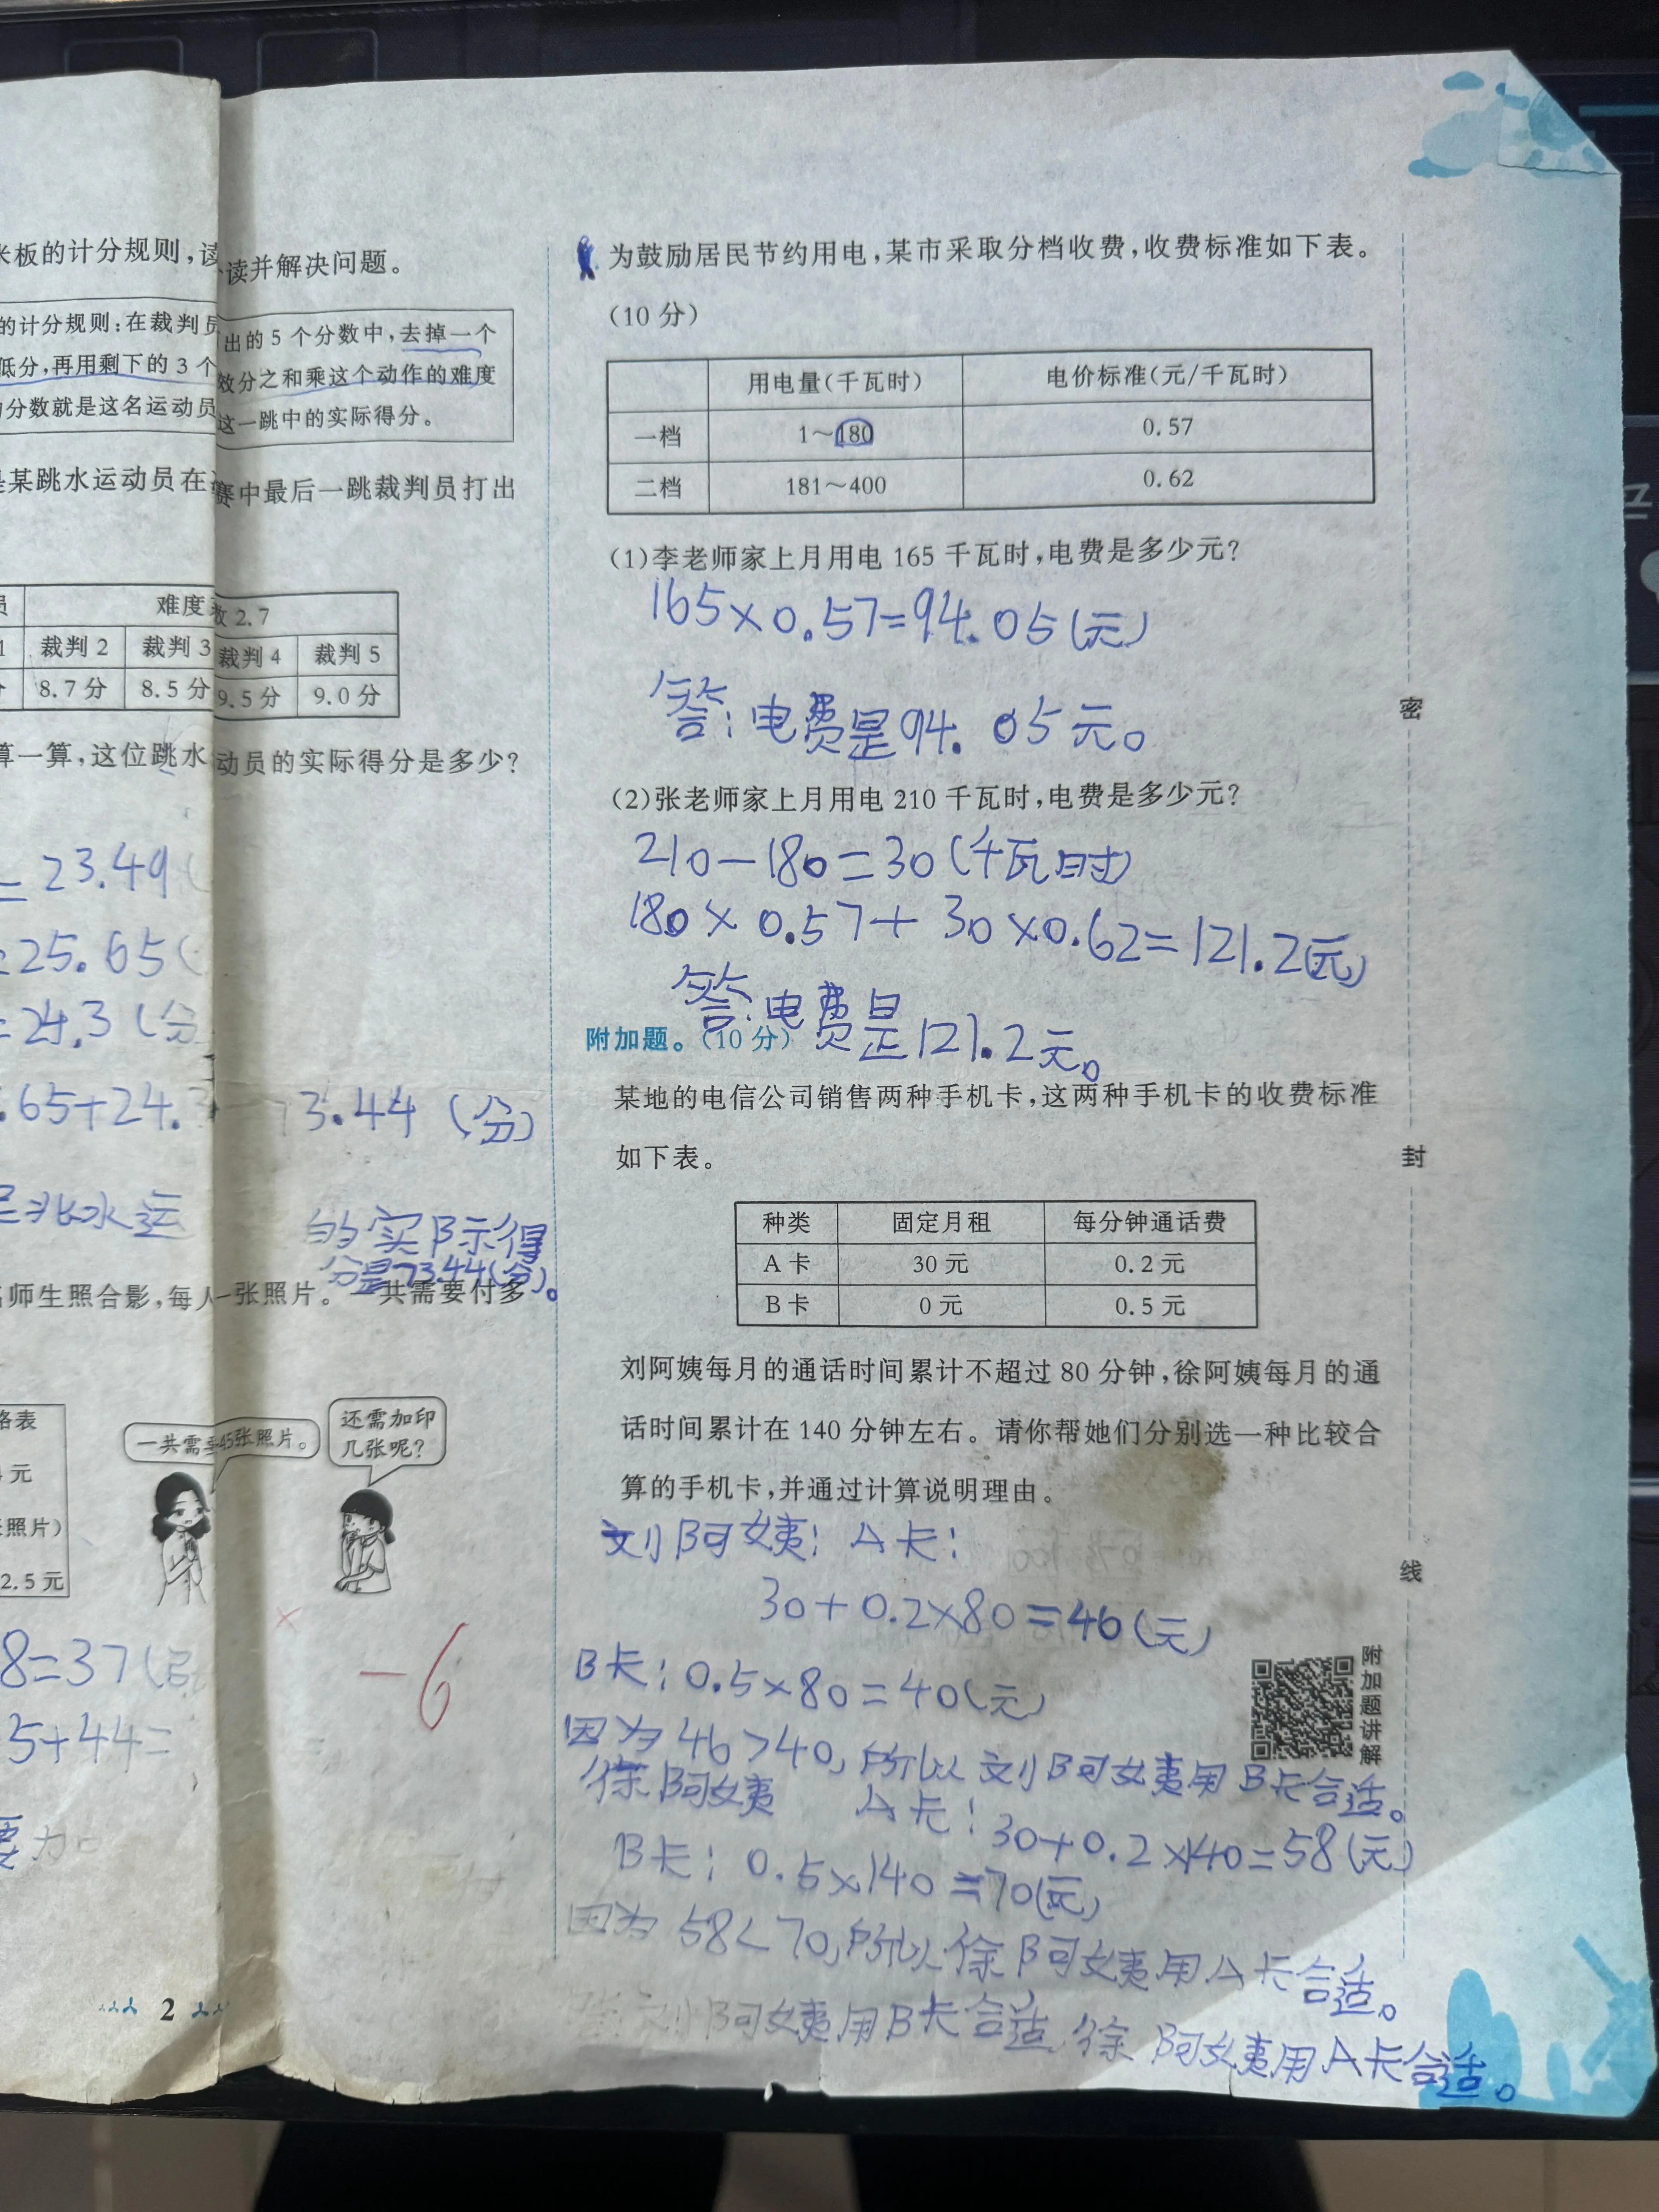 米板的计分规则,读
的计分规则:在裁判员
低分,再用剩下的 3 个
分数就是这名运动员
某跳水运动员在
难度
裁判 2 裁判 3
8.7 分 8.5 分
算一算,这位跳水
= 23.49
=25.65
=24.3(分
.65+24.3
水运
师生照合影,每人
格表
元
照片)
2.5 元
8=37(
5+44=
要加
2
读并解决问题。
出的 5 个分数中,去掉一个
效分之和乘这个动作的难度
这一跳中的实际得分。
赛中最后一跳裁判员打出
数 2.7
裁判 4 裁判 5
9.5 分 9.0 分
动员的实际得分是多少?
73.44(分)
的实际得
分是73.44(分)。
一张照片。一共需要付多
一共需要45张照片。
还需加印
几张呢?
×
-6
为鼓励居民节约用电,某市采取分档收费,收费标准如下表。
(10 分)
用电量(千瓦时) 电价标准(元/千瓦时)
一档 1~180 0.57
二档 181~400 0.62
(1)李老师家上月用电 165 千瓦时,电费是多少元?
165×0.57=94.05(元)
答:电费是94.05元。
(2)张老师家上月用电 210 千瓦时,电费是多少元?
210-180=30(千瓦时)
180×0.57+30×0.62=121.2(元)
答:电费是121.2元。
附加题。(10 分)
某地的电信公司销售两种手机卡,这两种手机卡的收费标准
如下表。
种类 固定月租 每分钟通话费
A 卡 30 元 0.2 元
B 卡 0 元 0.5 元
刘阿姨每月的通话时间累计不超过 80 分钟,徐阿姨每月的通
话时间累计在 140 分钟左右。请你帮她们分别选一种比较合
算的手机卡,并通过计算说明理由。
刘阿姨:A卡:
30+0.2×80=46(元)
B卡:0.5×80=40(元)
因为46>40,所以刘阿姨用B卡合适。
徐阿姨 A卡:30+0.2×140=58(元)
B卡:0.5×140=70(元)
因为58<70,所以徐阿姨用A卡合适。
刘阿姨用B卡合适,徐阿姨用A卡合适。
附加题讲解
密
封
线